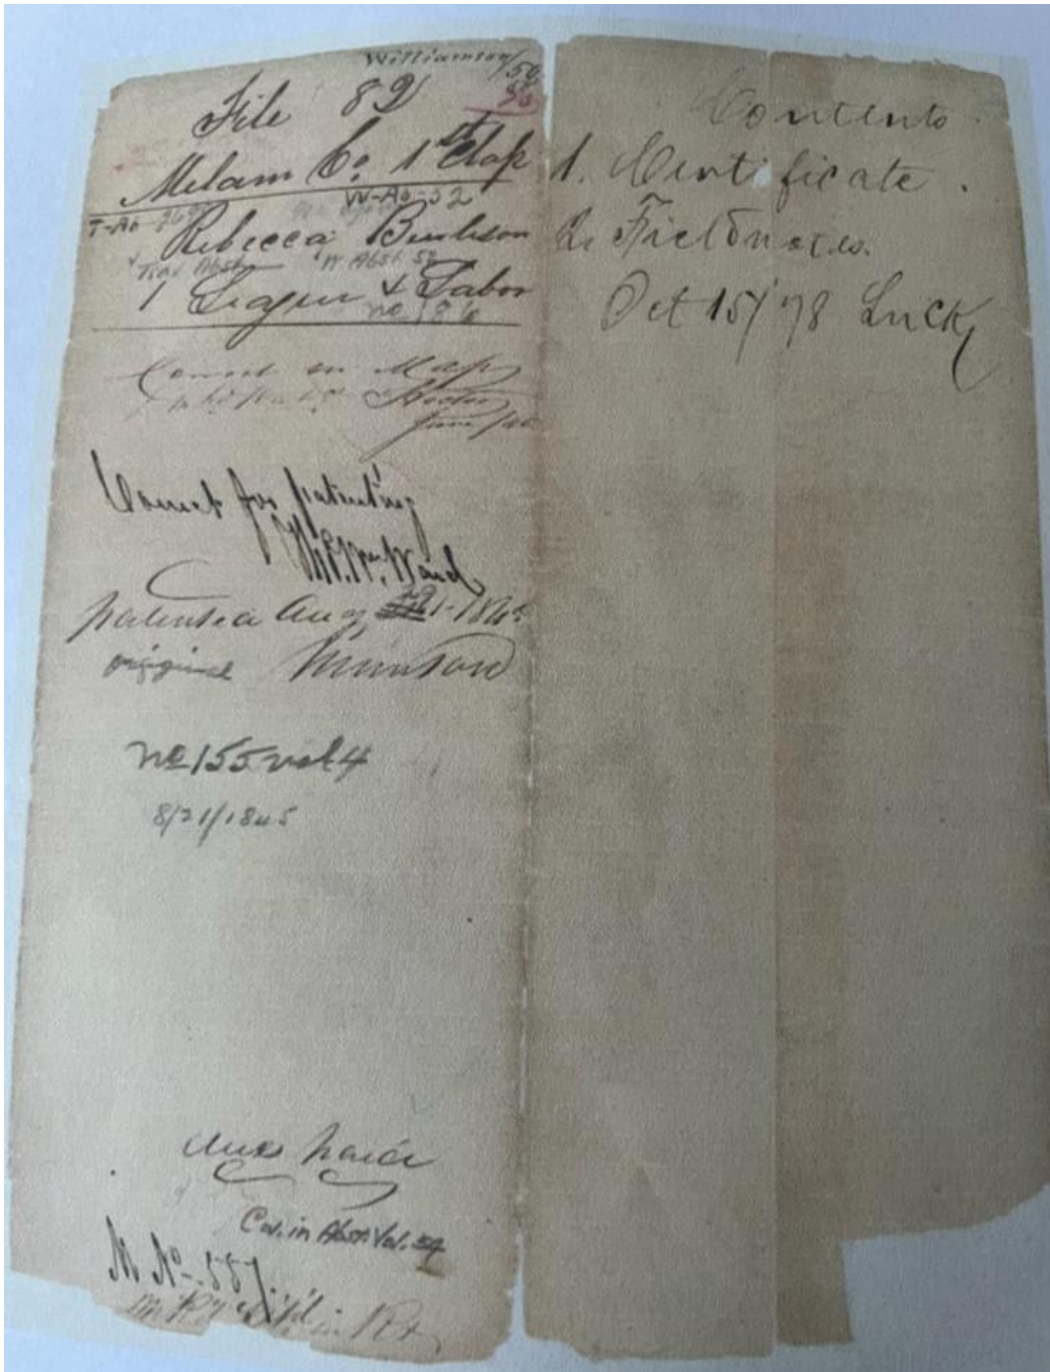 Williamson
File 82
Milam Co. 1st Class
W-Ab-52
T-Ab
Rebecca Burleson
Trav Abst W. Abst 52
1 League & Labor
No 186
Correct on Map
June
Correct for patenting
Th. Wm. Ward
patented Aug 21-1845
original Munson
No 155 vol 4
8/21/1845
Dues paid
Cor. in Abst. Vol. 54
M No-557
Contents
1. Certificate.
2. Fieldnotes.
Oct 15/78 Lucky